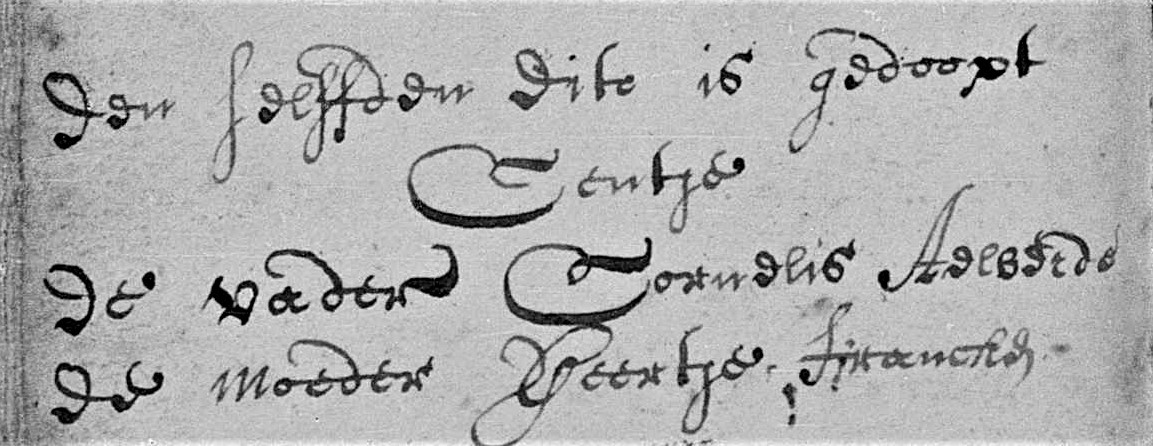 Den selffden dito is gedoopt
Centje
De vader Cornelis Aelberde
De moeder Geertje Franckn